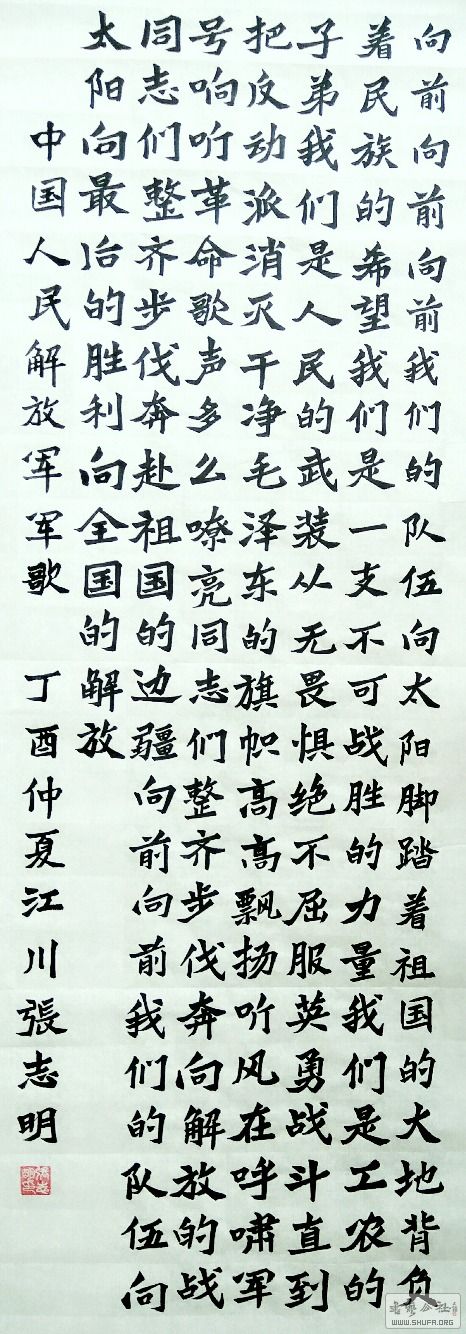 向前向前向前我们的队伍向太阳脚踏着祖国的大地背负
着民族的希望我们是一支不可战胜的力量我们是工农的
子弟我们是人民的武装从无畏惧绝不屈服英勇战斗直到
把反动派消灭干净毛泽东的旗帜高高飘扬听风在呼啸军
号响听革命歌声多么嘹亮同志们整齐步伐奔向解放的战
同志们整齐步伐奔赴祖国的边疆向前向前我们的队伍向
太阳向最后的胜利向全国的解放
中国人民解放军军歌 丁酉仲夏江川張志明
WWW.SHUFA.ORG